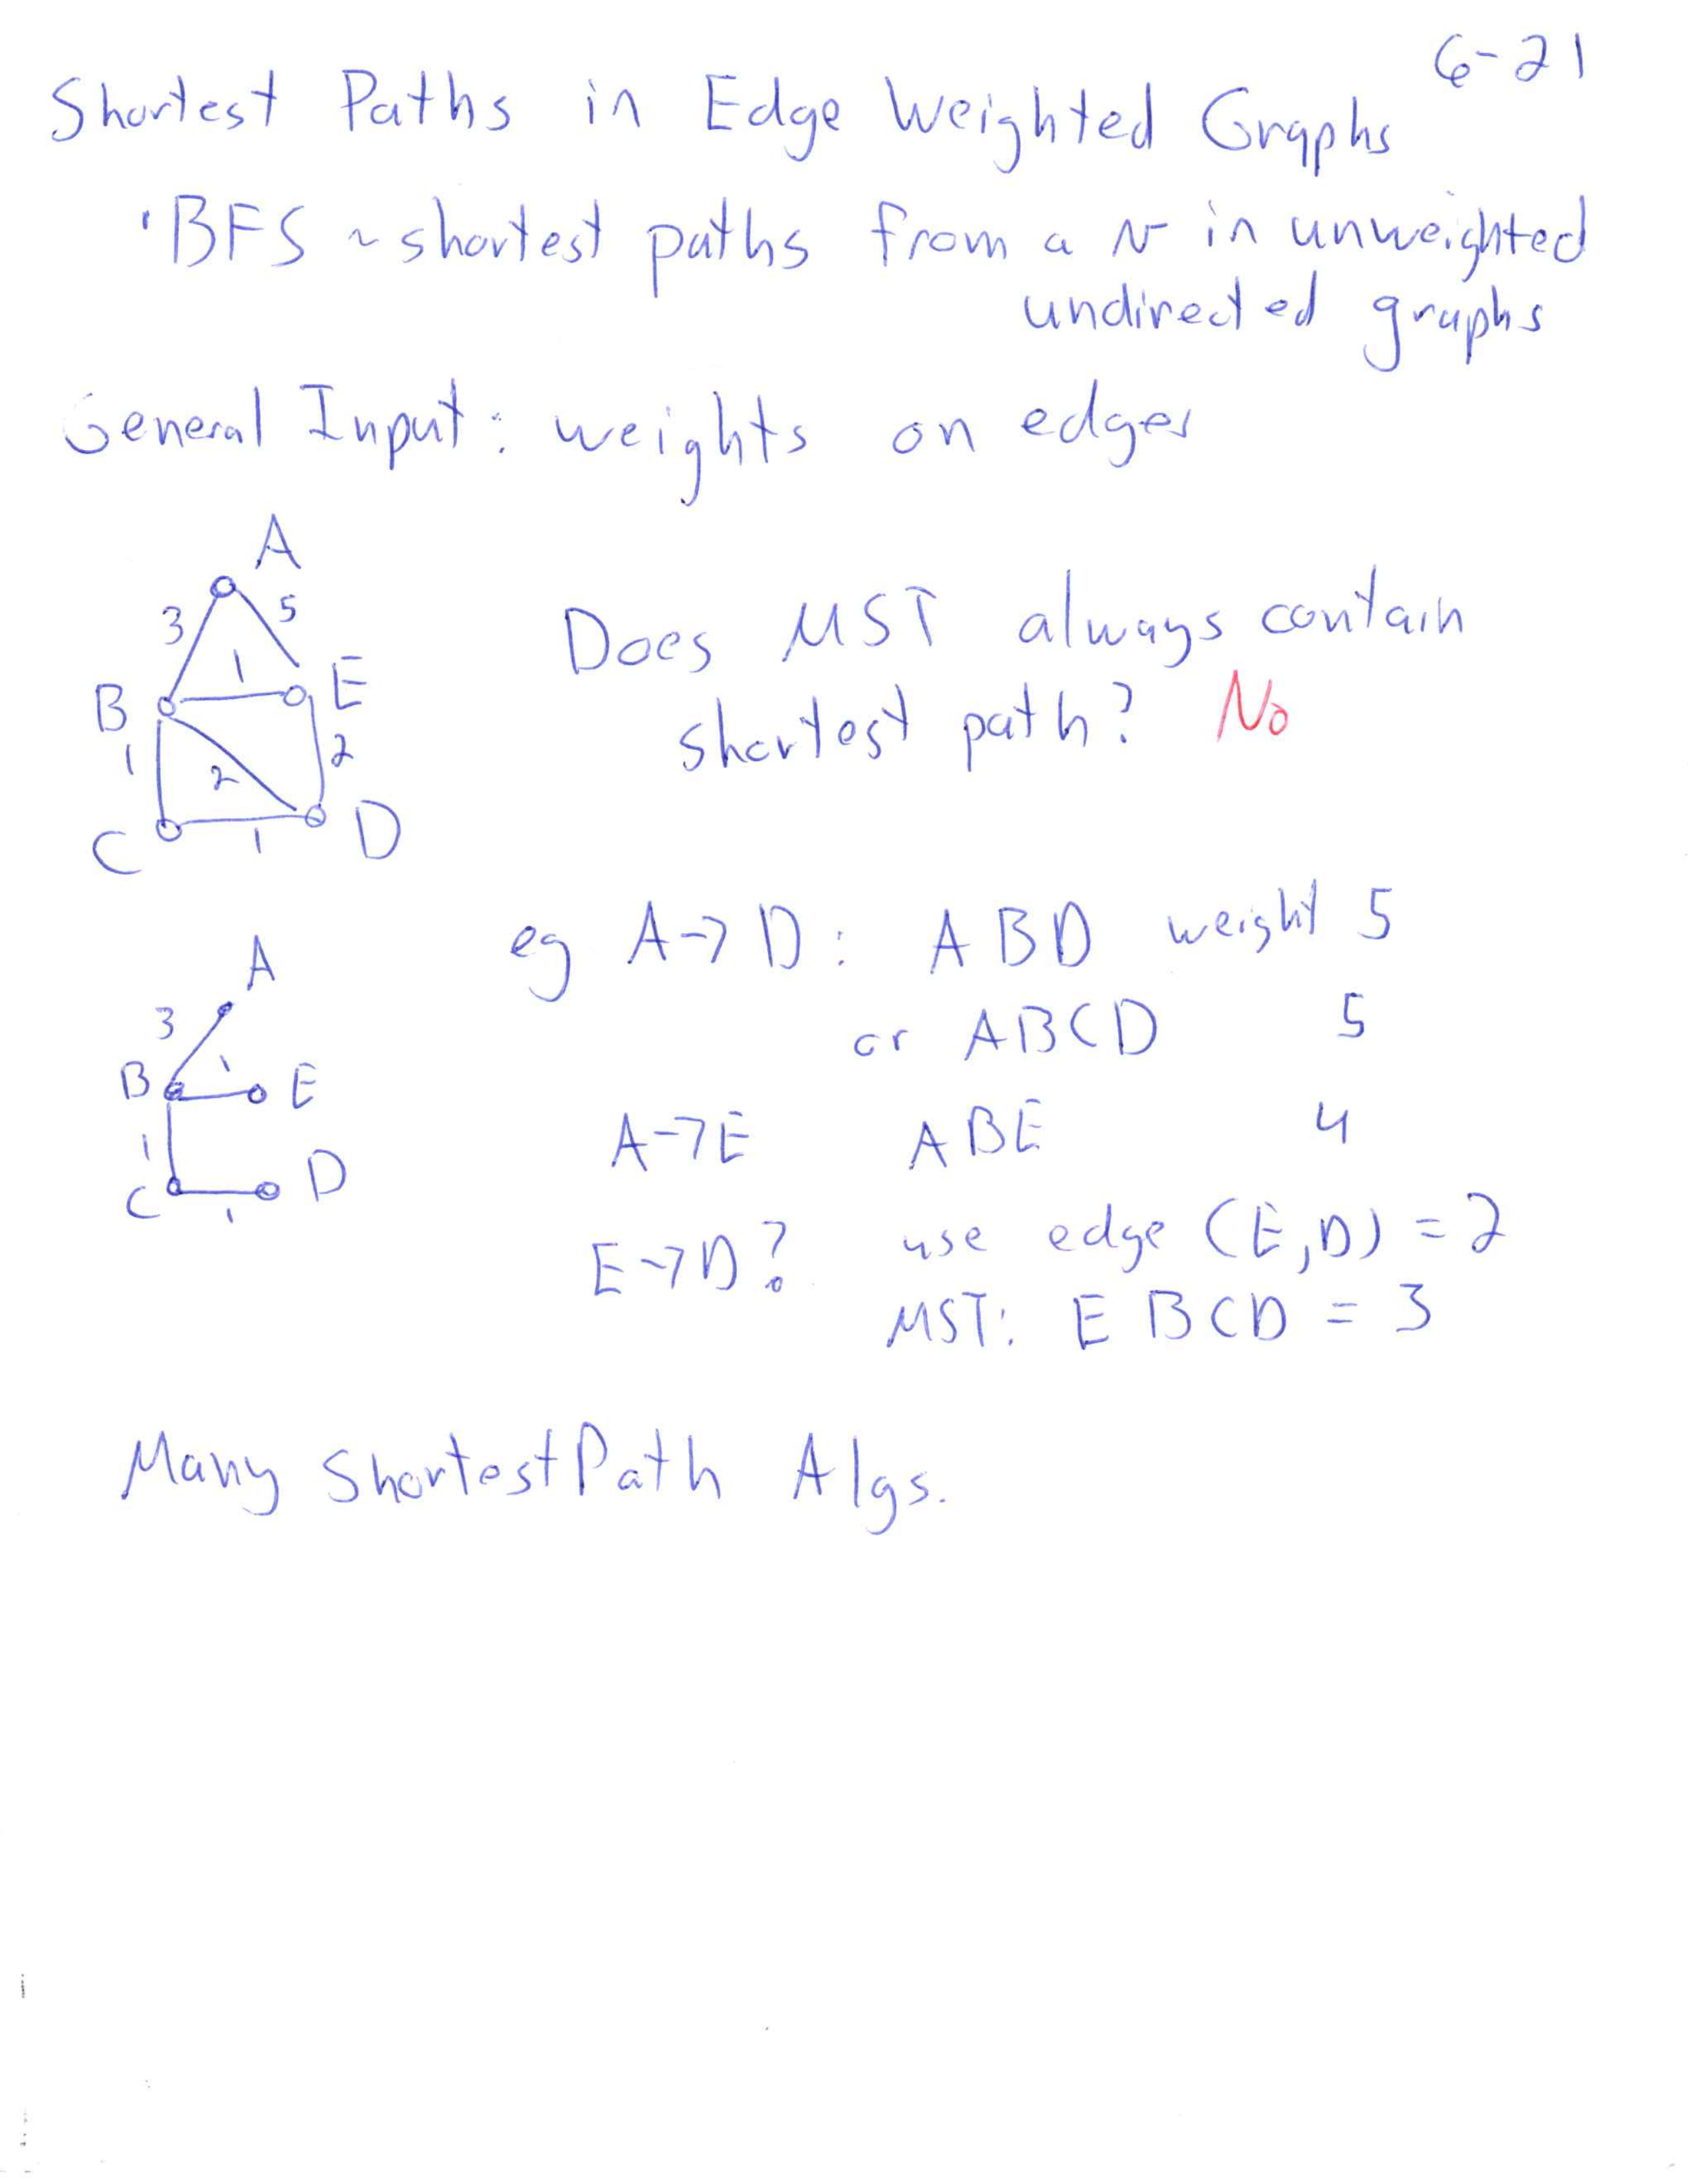 6-21
Shortest Paths in Edge Weighted Graphs
· BFS ~ shortest paths from a v in unweighted
undirected graphs
General Input: weights on edges
A
3 5
1
B E
1 2 2
C D
1
Does MST always contain
shortest path? No
eg A→D: ABD weight 5
or ABCD 5
A→E ABE 4
E→D? use edge (E,D) = 2
MST: EBCD = 3
A
3
1
B E
1
C D
1
Many Shortest Path Algs.